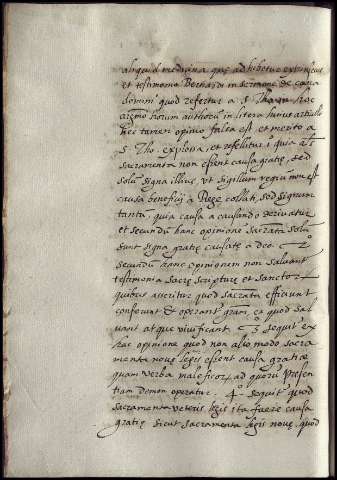 aliquid medicina quę adhibetur extrinsecus
et testimonio Bernardi in sermone de cœna
domini quod refertur a S. Thoma hoc
argumẽto horum authorũ in litera huius articuli
hęc tamen opinio falsa est, et merito a
S. Tho. explosa, et refellitur 1. quia
sacramenta non essent causa gratię, sed
solũ signa illius, vt sigillum regiũ non est
causa beneficij a Rege collati, sed signum
tantũ, quia causa a causando deriuatur
et secundũ hanc opinionẽ sacrata solũ
sunt signa gratię causatę a deo. 2º
secundũ hanc opinionem non saluant
testimonia sacrę scripturę et sanctor
quibus asseritur quod sacrata efficiunt
conferunt et operant gram, ea quod sal
uant atque viuificant. 3º sequit ex
hac opinione quod non alio modo sacra
menta nouę legis essent causa gratię
quam verba maleficor ad quorũ presen
tiam demon operatur. 4. sequit quod
sacramenta veteris legis ita fuere causa
gratię sicut sacramenta legis nouę, quod